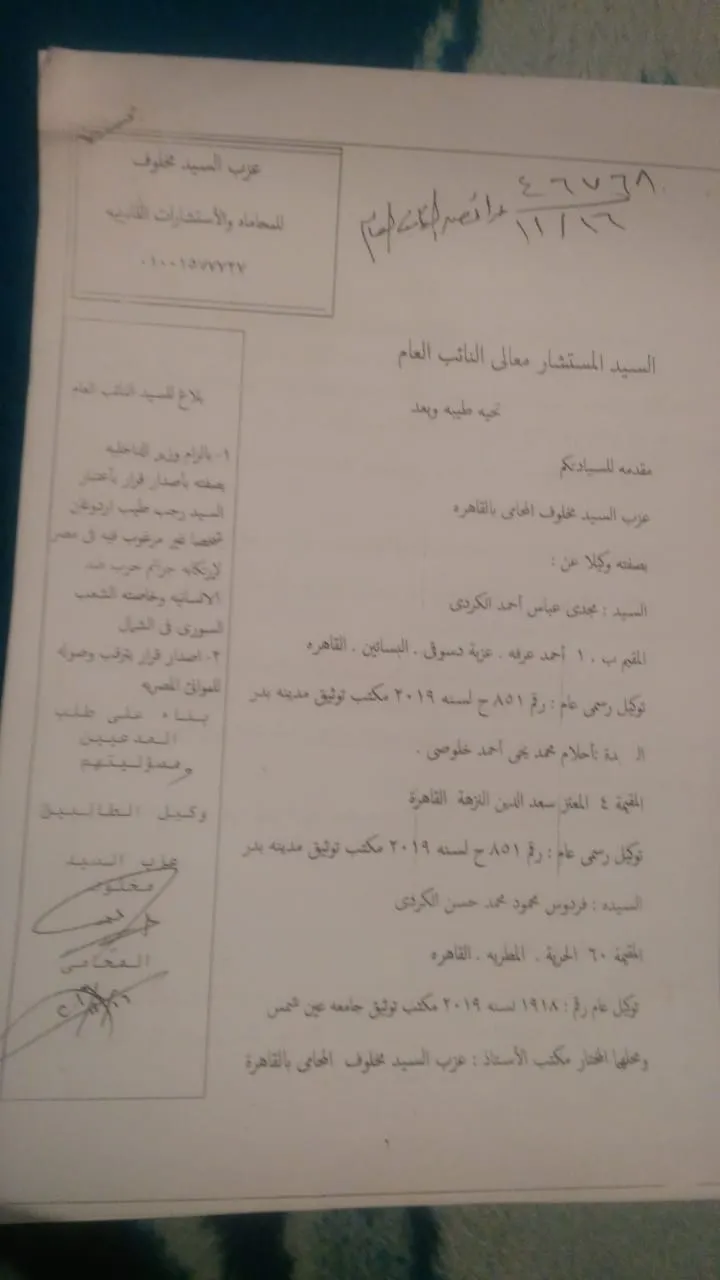 عزب السيد مخلوف
للمحاماه والأستشارات القانونيه
٠١٠٠١٥٧٧٧٢٧
٤٦٧٦٨
١١/١٦
عرائض النائب العام
السيد المستشار معالى النائب العام
تحيه طيبه وبعد
مقدمه للسيادتكم
عزب السيد مخلوف المحامى بالقاهره
بصفته وكيلا عن :
السيد : مجدى عباس أحمد الكردى
المقيم ب ١٠ أحمد عرفه . عزبة دسوق . البساتين . القاهره
توكيل رسمى عام : رقم ٨٥١ ح لسنه ٢٠١٩ مكتب توثيق مدينه بدر
ال دة :أحلام محمد يحى أحمد خلوصى .
المقيمة ٤ المعتز سعد الدين النزهة القاهرة
توكيل رسمى عام : رقم ٨٥١ ح لسنه ٢٠١٩ مكتب توثيق مدينه بدر
السيده : فردوس محمود محمد حسن الكردى
المقيمة ٦٠ الحرية . المطريه . القاهره
توكيل عام رقم : ١٩١٨ لسنه ٢٠١٩ مكتب توثيق جامعه عين شمس
ومحلها المختار مكتب الأستاذ : عزب السيد مخلوف المحامى بالقاهرة
بلاغ للسيد النائب العام
١- بالزام وزير الداخليه
بصفته بأصدار قرار بأعتبار
السيد رجب طيب اردوغان
شخصا غير مرغوب فيه فى مصر
لإرتكابه جرائم حرب ضد
الانسانيه وخاصته الشعب
السورى فى الشمال
٢- اصدار قرار بترقب وصوله
للموانئ المصريه
بناء على طلب
المدعيين
ومسؤليتهم
وكيل الطالبين
عزب السيد
مخلوف
المحامى
١